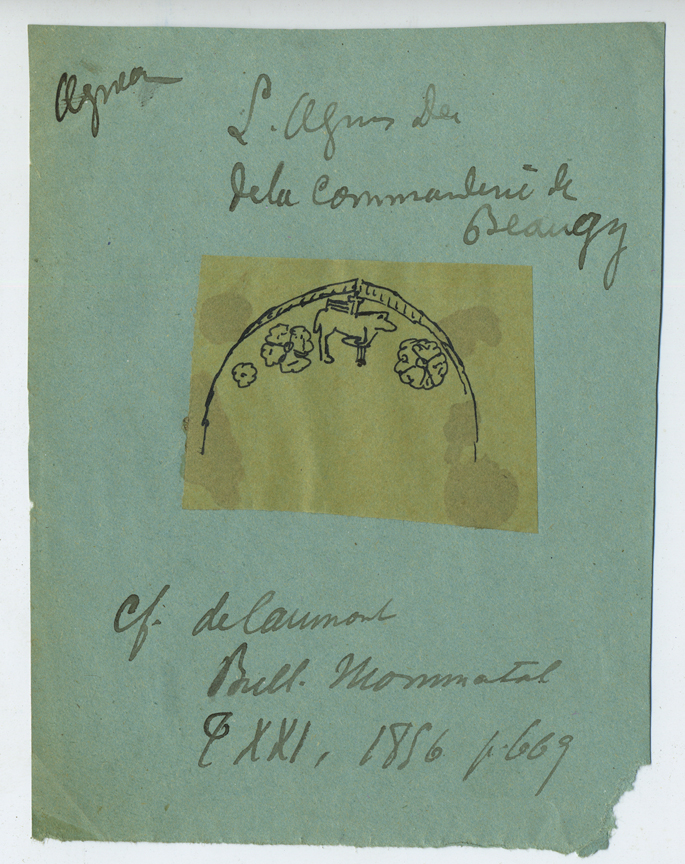 Agneau
L'Agnus Dei
de la Commanderie de
Beaugy
Cf. de Caumont
Bull. Monumental
T XXI, 1856 p. 669